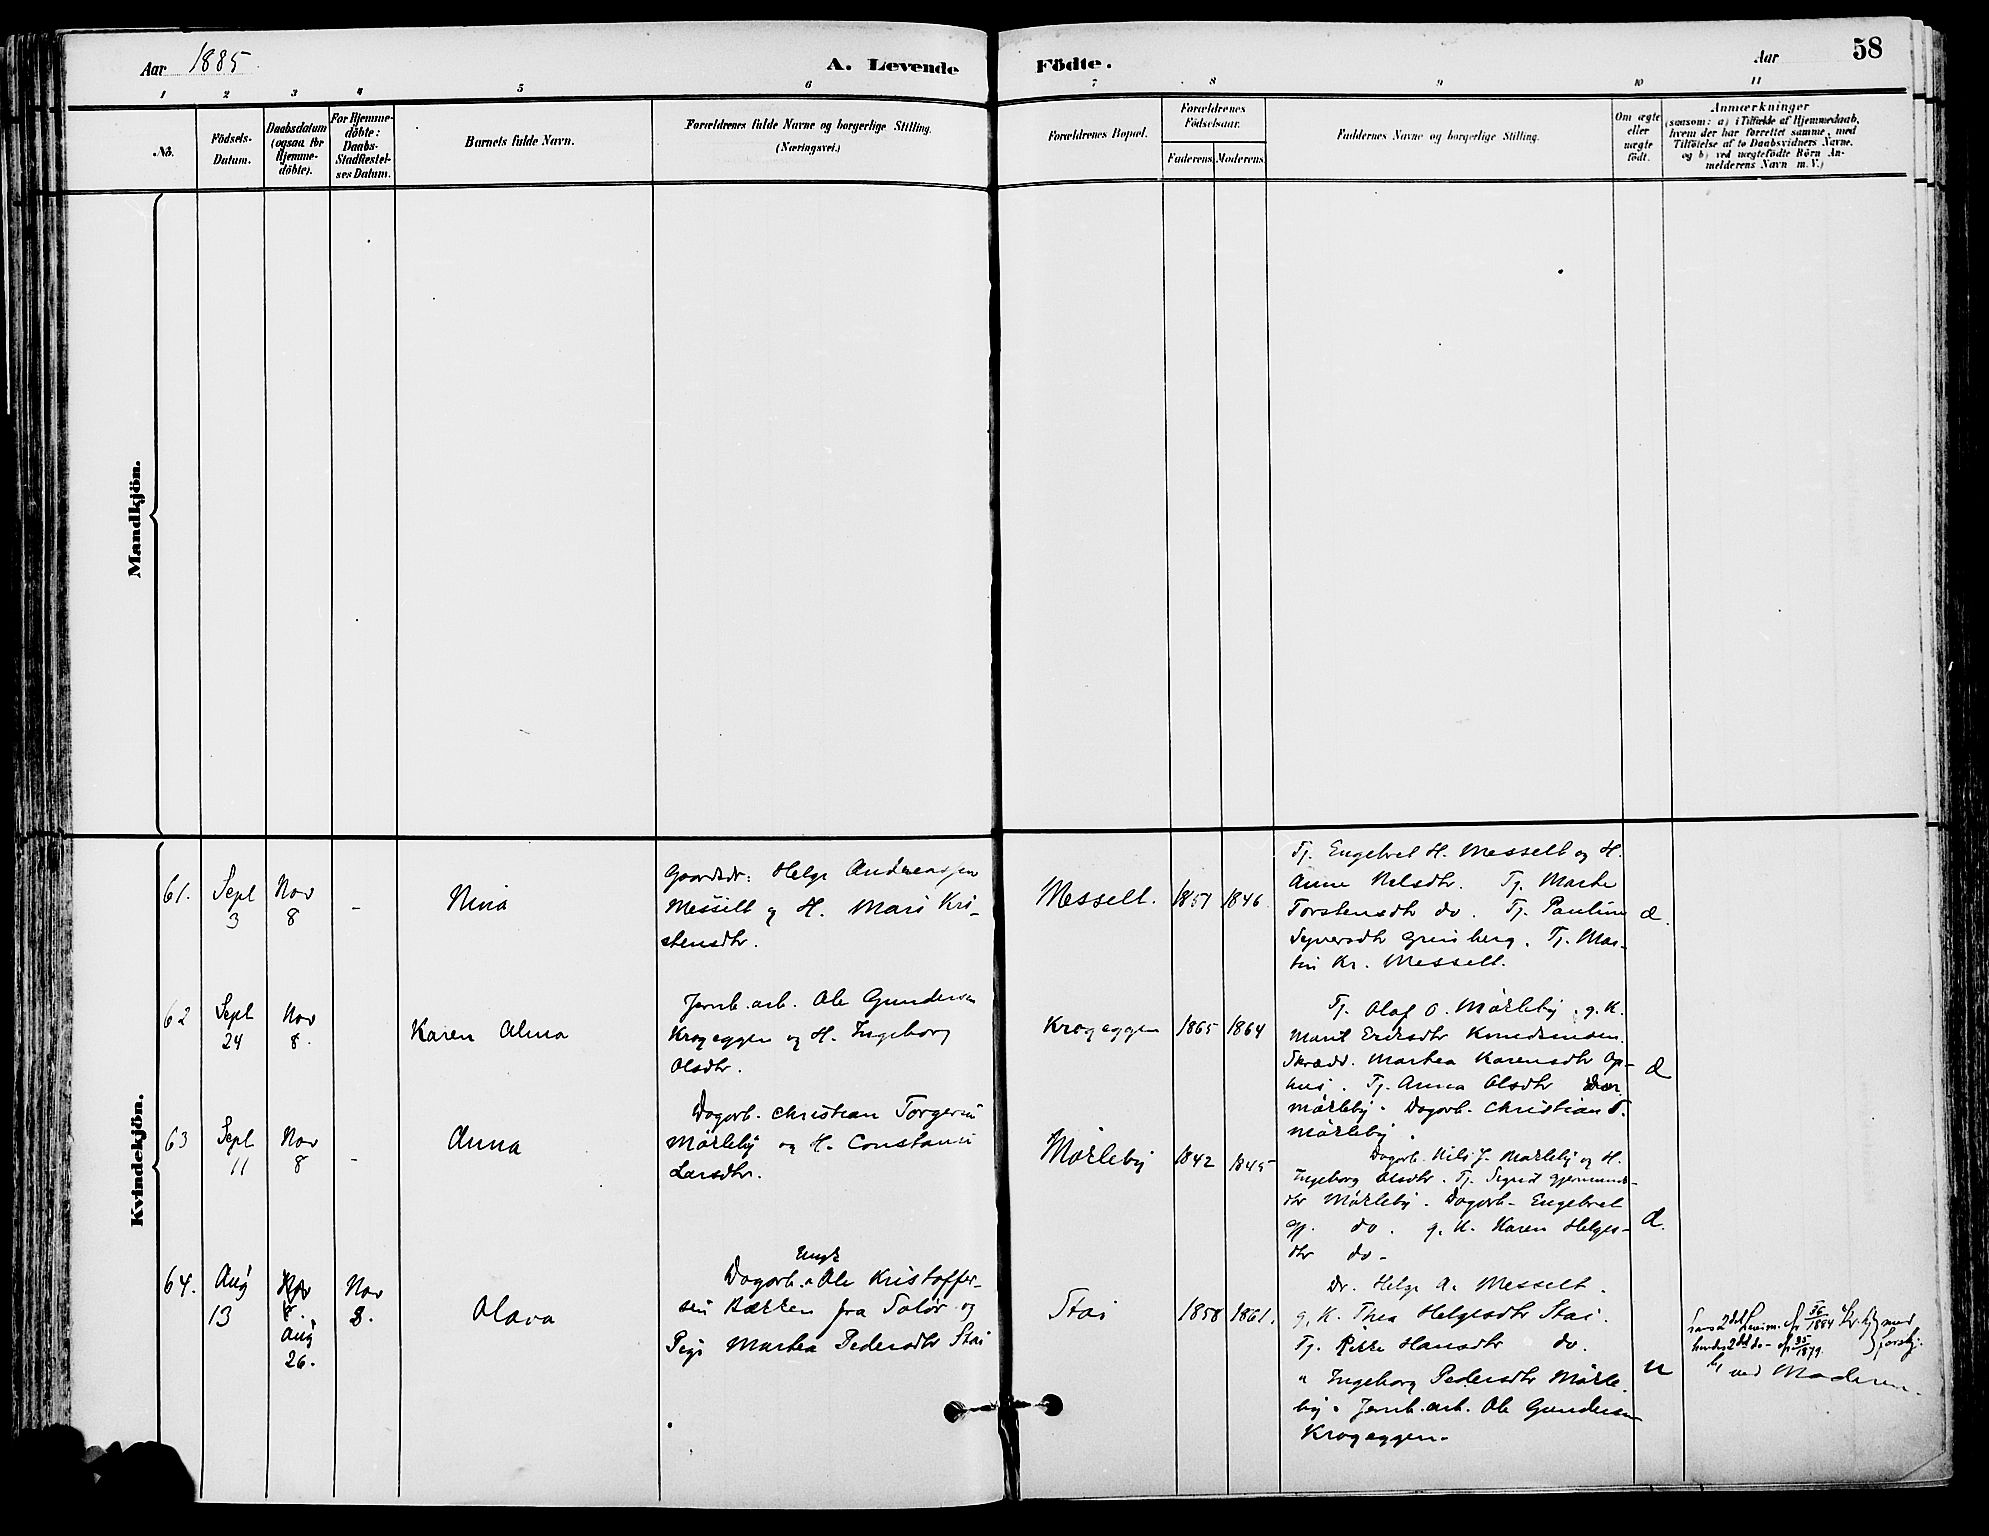 Aar 1885
A. Levende
Födte.
Aar
58
1 2 3 4 5 6 7 8 9 10 11
No.
Födsels-Datum.
Daabsdatum (ogsaa for Hjemme-döbte).
For Hjemme-döbte: Daabs-Stadfæstel-ses Datum.
Barnets fulde Navn.
Forældrenes fulde Navne og borgerlige Stilling.
(Næringsvei.)
Forældrenes Bopæl.
Forældrenes Födselsaar.
Faderens. Moderens.
Faddernes Navne og borgerlige Stilling.
Om ægte eller uægte födt.
Anmærkninger
(saasom: a) i Tilfælde af Hjemmedaab,
hvem der har forrettet samme, med
Tilföielse af to Daabsvidners Navne,
og b) ved uægtefödte Börn An-
melderens Navn m. V.)
Mandkjön.
Kvindekjön.
61. Sept 3 Nov 8 - Nina
Gaardbr: Helge Andreassen
Messelt og H. Mari Kri-
stensdtr.
Messelt. 1851 1846
Tj. Engebret H. Messelt og H.
Anne Nelsdtr. Tj. Marte
Torstensdtr do. Tj. Pauline
Syversdtr Grinsberg. Tj. Mar-
tin Kr. Messelt.
æ.
62 Sept 24 Nov 8. Karen Alma
Jernb.arb. Ole Gundersen
Krogeggen og H. Ingeborg
Olsdtr.
Krogeggen 1865 1864
Tj. Olaf O. Mörleby. g. K.
Marit Ericsdtr Knudsmoen.
Skrædd. Martea Karensdtr Op-
hus. Tj. Anna Olsdtr
Mörleby. Dagarb. Christian T.
Mörleby.
æ
63 Sept 11 Nov 8 - Anna
Dagarb. Christian Torgersen
Mörleby og H. Constance
Larsdtr.
Mörleby 1842 1845
Dagarb. Nils J. Mörleby og H.
Ingeborg Olsdtr. Tj. Sigrid Gjermunds-
dtr Mörleby. Dagarb. Engebret
Gj. do. g. K. Karen Helges-
dtr do-
æ.
64. Aug 13 Nov 8. Aug 26. Nov 8. Olava
Ungk
Dagarb. Ole Kristoffer-
sen Bakken fra Solör og
Pige Martea Pedersdtr Stai
Stai 1858 1861.
Dr. Helge A. Messelt.
g. K. Thea Helgesdtr Stai.
Tj. Rikke Hansdtr do.
" Ingeborg Pedersdtr Mörle-
by. Jernb.arb. Ole Gundersen
Krogeggen.
u
hans 2det Leierm. 1884
hendes 2det do- 1879
ved Moderen.